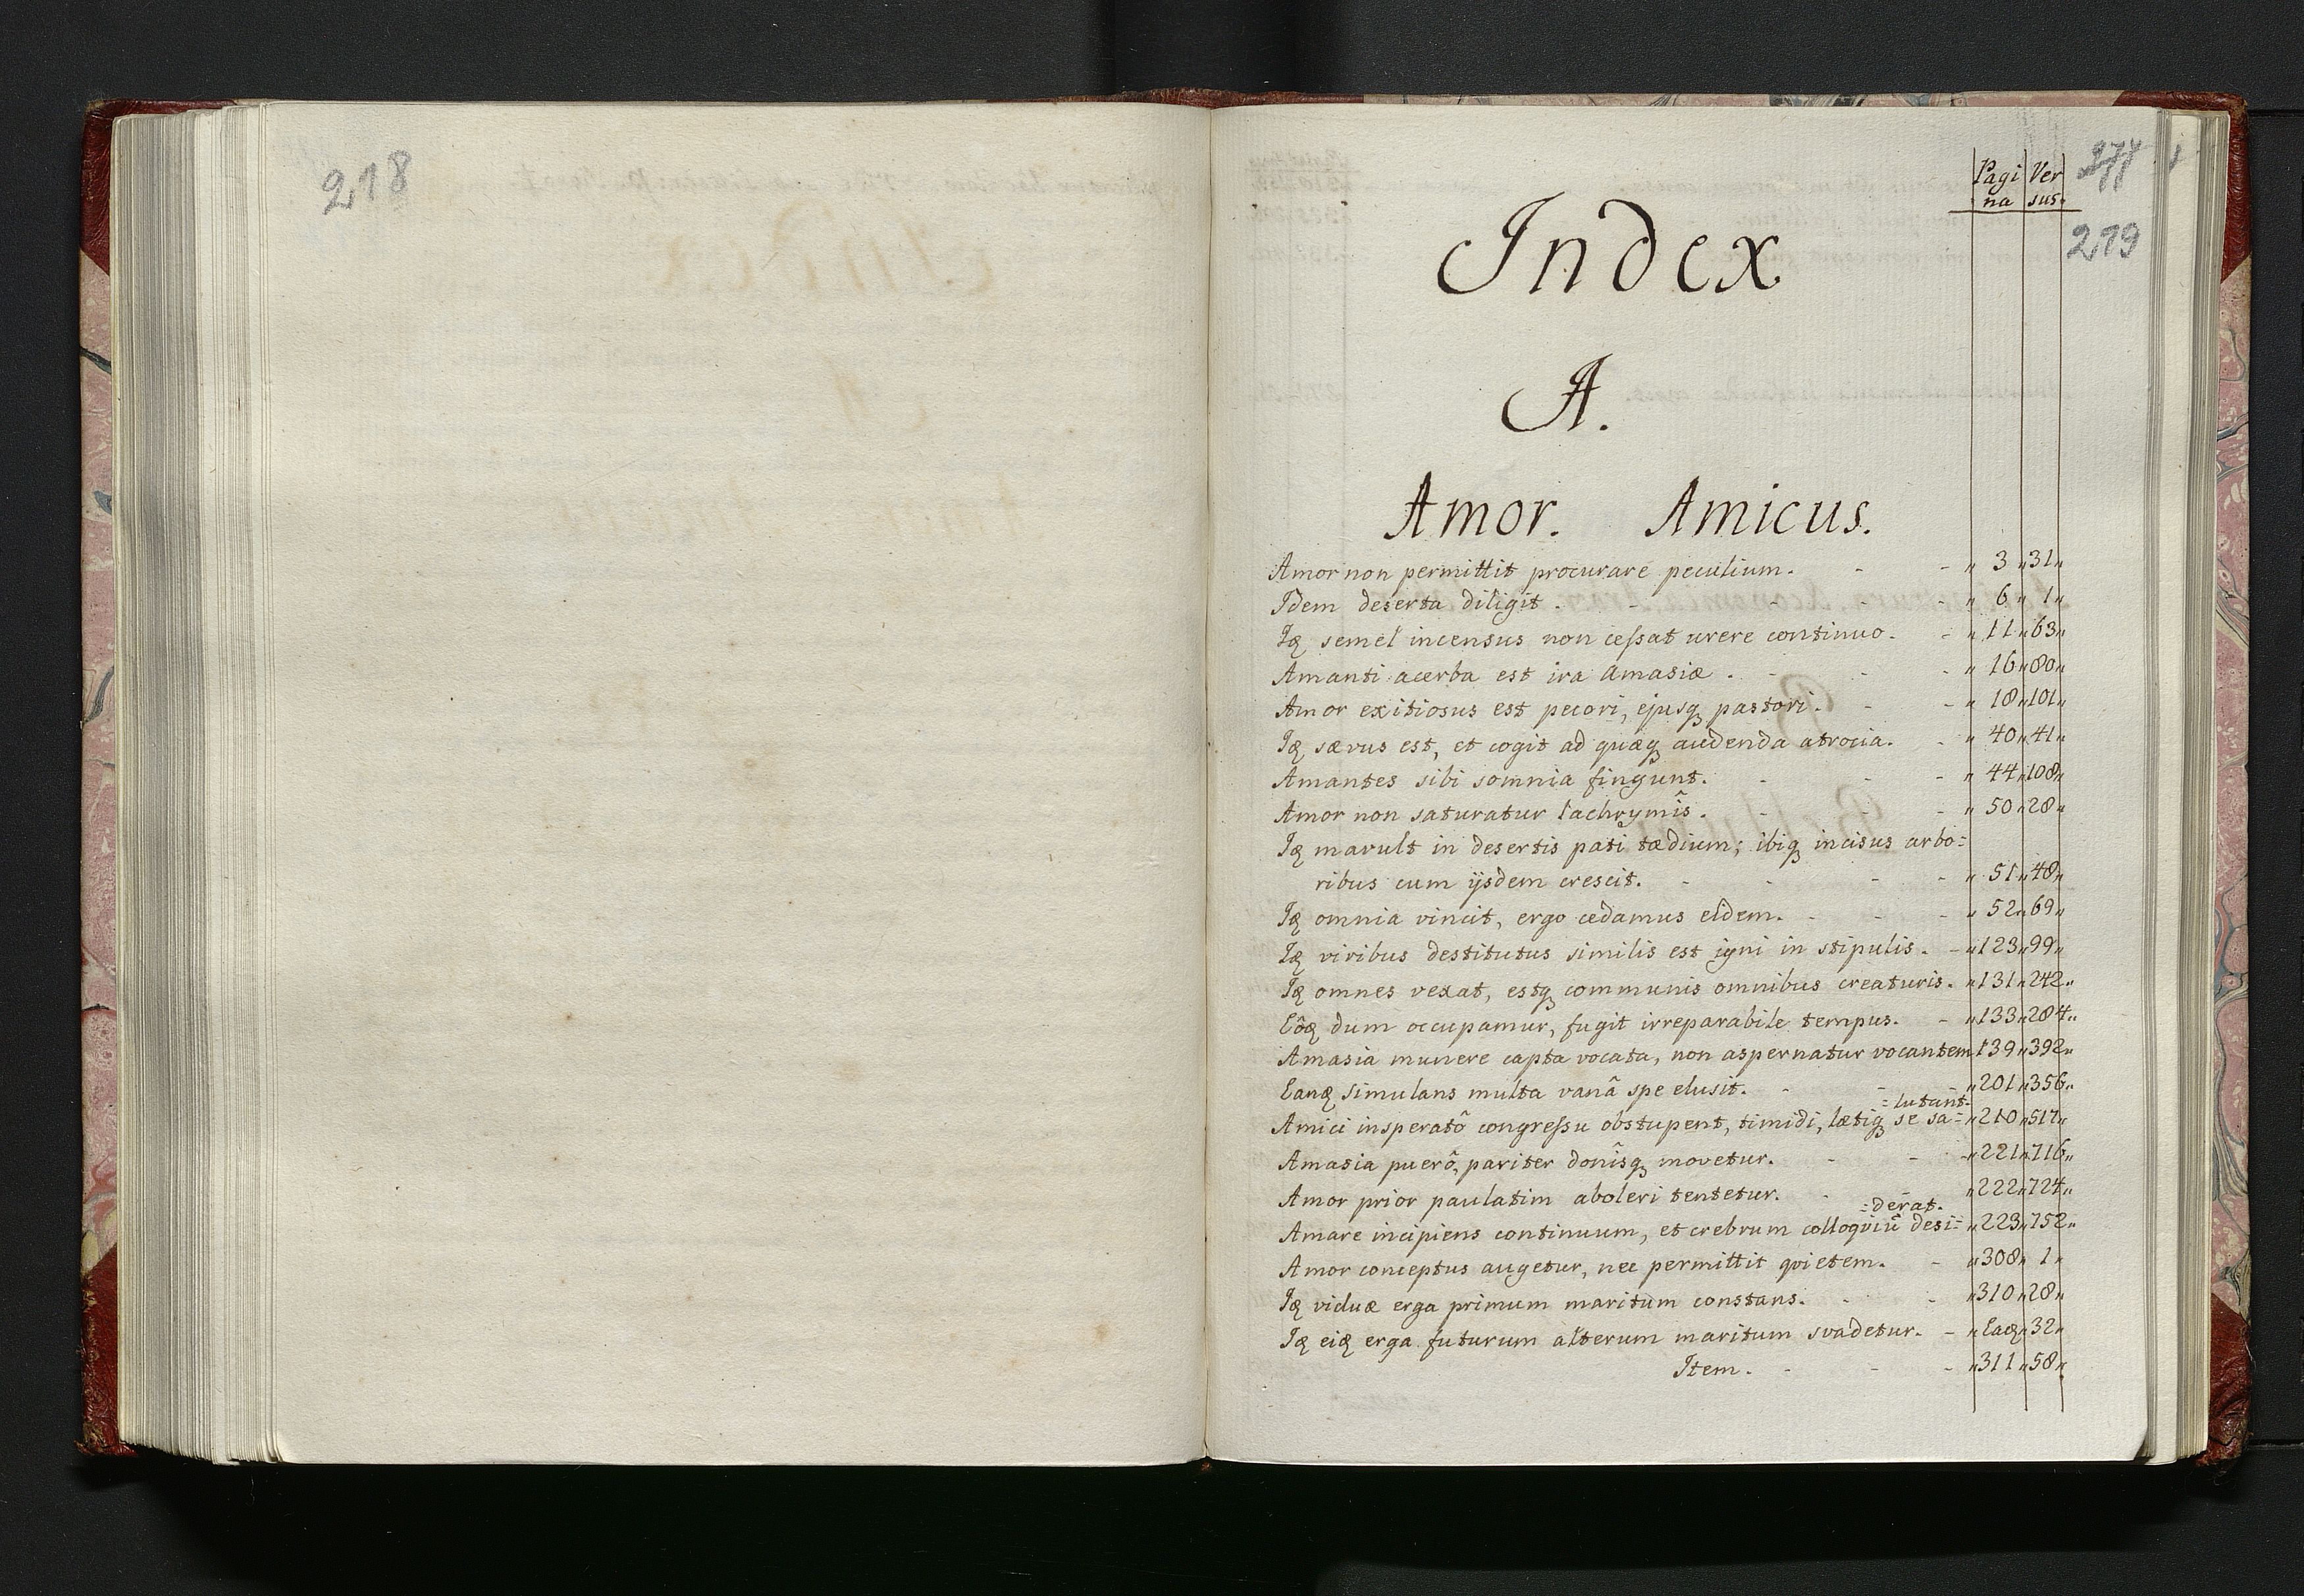 218
Pagi Ver
na sus.
219
Index
A.
Amor. Amicus.
Amor non permittit procurare peculium. - - „ 3 „ 31 „
Idem deserta diligit. - - - - „ 6 „ 1 „
Iꝗ semel incensus non ceſsat urere continuo. - „ 11 „ 63 „
Amanti acerba est ira Amasiæ. - - - „ 16 „ 80 „
Amor exitiosus est pecori, ejusꝗ pastori. - - „ 18 „ 101 „
Iꝗ sævus est, et cogit ad quæꝗ audenda atrocia. - „ 40 „ 41 „
Amantes sibi somnia fingunt. - - - „ 44 „ 108 „
Amor non saturatur lachrymîs. - - - „ 50 „ 28 „
Iꝗ mavult in desertis pati tædium; ibiꝗ incisus arbo=
ribus cum ijsdem crescit. - - - - „ 51 „ 48 „
Iꝗ omnia vincit, ergo cedamus eidem. - - - „ 52 „ 69 „
Iꝗ viribus destitutus similis est igni in stipulis. - „ 123 „ 99 „
Iꝗ omnes vexat, estꝗ communis omnibus creaturis. „ 131 „ 242 „
Eôꝗ dum occupamur, fugit irreparabile tempus. - „ 133 „ 284 „
Amasia munere capta vocata, non aspernatur vocantem „ 139 „ 392 „
Eanꝗ simulans multa vanâ spe elusit. - - - „ 201 „ 356 „
=lutant.
Amici insperatô congreſsu obstupent, timidi, lætiꝗ se sa= „ 210 „ 517 „
Amasia puerô, pariter donîsꝗ movetur. - - - „ 221 „ 716 „
Amor prior paulatim aboleri tentetur. - „ 222 „ 724 „
=derat.
Amare incipiens continuum, et crebrum colloqviũ desi= „ 223 „ 752 „
Amor conceptus augetur, nec permittit qvietem. - „ 308 „ 1 „
Iꝗ viduæ erga primum maritum constans. - - „ 310 „ 28 „
Iꝗ eiꝗ erga futurum alterum maritum svadetur. - „ Eaꝗ „ 32 „
Item. - - - „ 311 „ 58 „